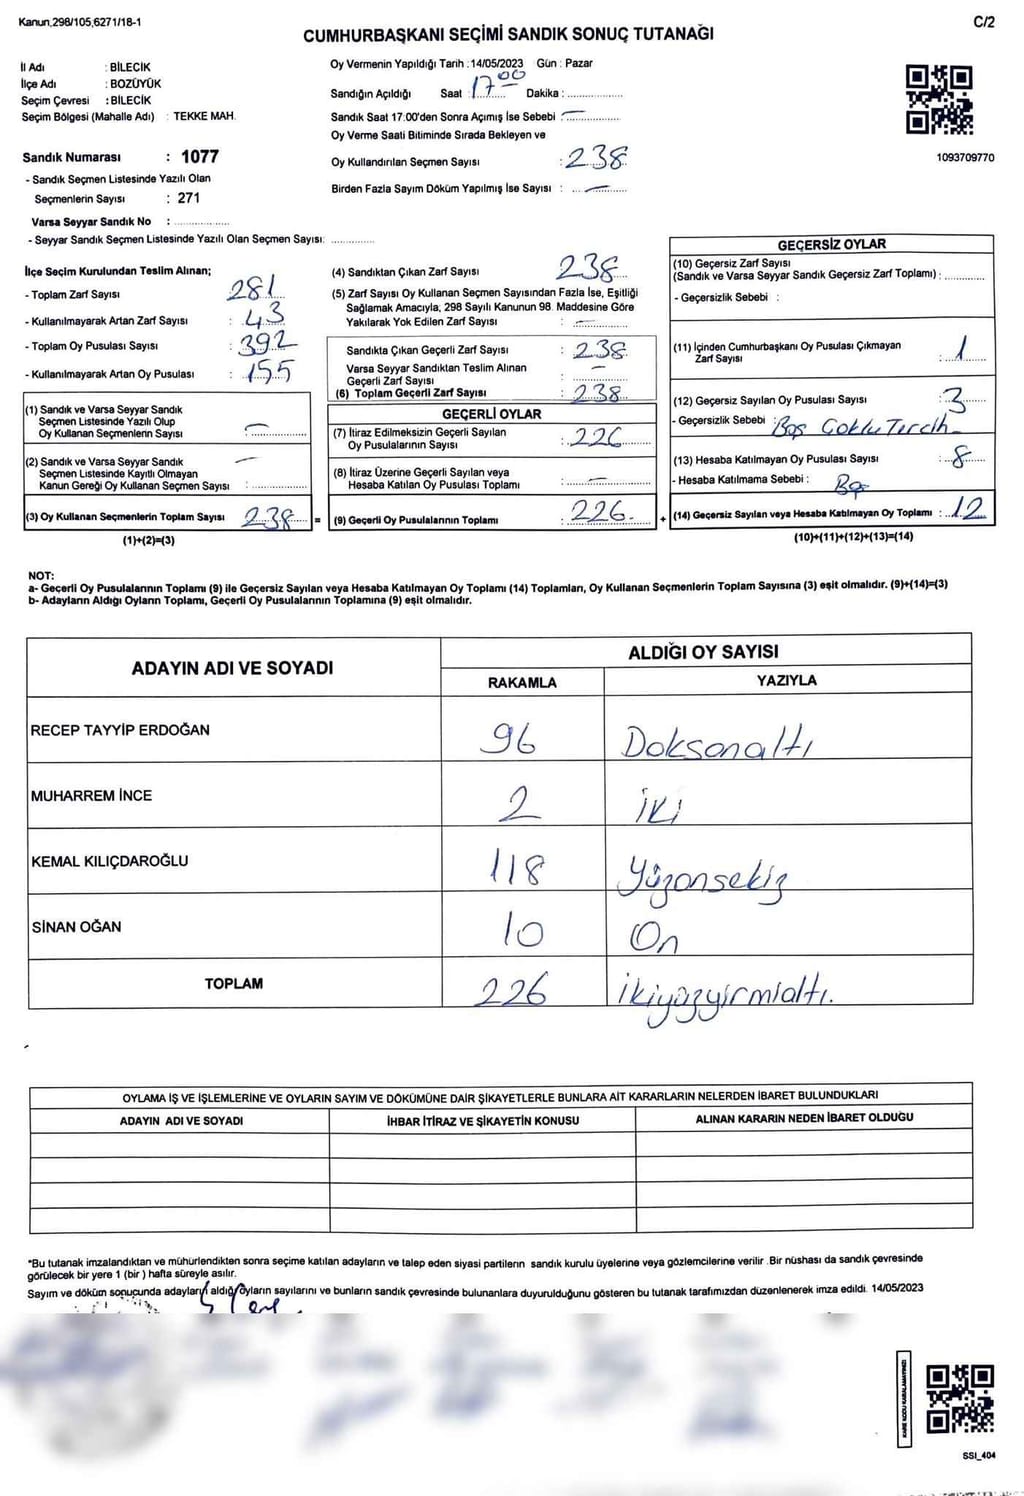 Kanun,298/105,6271/18-1
C/2
CUMHURBAŞKANI SEÇİMİ SANDIK SONUÇ TUTANAĞI
İl Adı : BİLECİK
İlçe Adı : BOZÜYÜK
Seçim Çevresi : BİLECİK
Seçim Bölgesi (Mahalle Adı) : TEKKE MAH.
Oy Vermenin Yapıldığı Tarih : 14/05/2023 Gün : Pazar
Sandığın Açıldığı Saat : 17.00 Dakika : ....................
Sandık Saat 17:00'den Sonra Açımış İse Sebebi : —
Oy Verme Saati Bitiminde Sırada Bekleyen ve
Oy Kullandırılan Seçmen Sayısı : 238
Birden Fazla Sayım Döküm Yapılmış İse Sayısı : —
1093709770
Sandık Numarası : 1077
- Sandık Seçmen Listesinde Yazılı Olan
Seçmenlerin Sayısı : 271
Varsa Seyyar Sandık No : ....................
- Seyyar Sandık Seçmen Listesinde Yazılı Olan Seçmen Sayısı: ...............
İlçe Seçim Kurulundan Teslim Alınan;
- Toplam Zarf Sayısı 281
- Kullanılmayarak Artan Zarf Sayısı : 43
- Toplam Oy Pusulası Sayısı : 392
- Kullanılmayarak Artan Oy Pusulası : 155
(1) Sandık ve Varsa Seyyar Sandık
Seçmen Listesinde Yazılı Olup
Oy Kullanan Seçmenlerin Sayısı : —
(2) Sandık ve Varsa Seyyar Sandık
Seçmen Listesinde Kayıtlı Olmayan
Kanun Gereği Oy Kullanan Seçmen Sayısı : —
(3) Oy Kullanan Seçmenlerin Toplam Sayısı 238 =
(1)+(2)=(3)
(4) Sandıktan Çıkan Zarf Sayısı 238
(5) Zarf Sayısı Oy Kullanan Seçmen Sayısından Fazla İse, Eşitliği
Sağlamak Amacıyla, 298 Sayılı Kanunun 98. Maddesine Göre
Yakılarak Yok Edilen Zarf Sayısı : —
Sandıkta Çıkan Geçerli Zarf Sayısı : 238
Varsa Seyyar Sandıktan Teslim Alınan
Geçerli Zarf Sayısı : —
(6) Toplam Geçerli Zarf Sayısı : 238
GEÇERLİ OYLAR
(7) İtiraz Edilmeksizin Geçerli Sayılan
Oy Pusulalarının Sayısı : 226
(8) İtiraz Üzerine Geçerli Sayılan veya
Hesaba Katılan Oy Pusulası Toplamı : —
(9) Geçerli Oy Pusulalarının Toplamı : 226 +
GEÇERSİZ OYLAR
(10) Geçersiz Zarf Sayısı
(Sandık ve Varsa Seyyar Sandık Geçersiz Zarf Toplamı) : ...............
- Geçersizlik Sebebi :
(11) İçinden Cumhurbaşkanı Oy Pusulası Çıkmayan
Zarf Sayısı : 1
(12) Geçersiz Sayılan Oy Pusulası Sayısı : 3
- Geçersizlik Sebebi : Boş Çoklu Tercih
(13) Hesaba Katılmayan Oy Pusulası Sayısı : 8
- Hesaba Katılmama Sebebi : Boş
(14) Geçersiz Sayılan veya Hesaba Katılmayan Oy Toplamı : 12
(10)+(11)+(12)+(13)=(14)
NOT:
a- Geçerli Oy Pusulalarının Toplamı (9) ile Geçersiz Sayılan veya Hesaba Katılmayan Oy Toplamı (14) Toplamları, Oy Kullanan Seçmenlerin Toplam Sayısına (3) eşit olmalıdır. (9)+(14)=(3)
b- Adayların Aldığı Oyların Toplamı, Geçerli Oy Pusulalarının Toplamına (9) eşit olmalıdır.
ADAYIN ADI VE SOYADI
ALDIĞI OY SAYISI
RAKAMLA YAZIYLA
RECEP TAYYİP ERDOĞAN 96 Doksanaltı
MUHARREM İNCE 2 iki
KEMAL KILIÇDAROĞLU 118 Yüzonsekiz
SİNAN OĞAN 10 On
TOPLAM 226 ikiyüzyirmialtı.
OYLAMA İŞ VE İŞLEMLERİNE VE OYLARIN SAYIM VE DÖKÜMÜNE DAİR ŞİKAYETLERLE BUNLARA AİT KARARLARIN NELERDEN İBARET BULUNDUKLARI
ADAYIN ADI VE SOYADI İHBAR İTİRAZ VE ŞİKAYETİN KONUSU ALINAN KARARIN NEDEN İBARET OLDUĞU
*Bu tutanak imzalandıktan ve mühürlendikten sonra seçime katılan adayların ve talep eden siyasi partilerin sandık kurulu üyelerine veya gözlemcilerine verilir .Bir nüshası da sandık çevresinde
görülecek bir yere 1 (bir ) hafta süreyle asılır.
Sayım ve döküm sonucunda adayların aldığı oyların sayılarını ve bunların sandık çevresinde bulunanlara duyurulduğunu gösteren bu tutanak tarafımızdan düzenlenerek imza edildi. 14/05/2023
KARE KODU KARALAMAYINIZ!
SSI_404